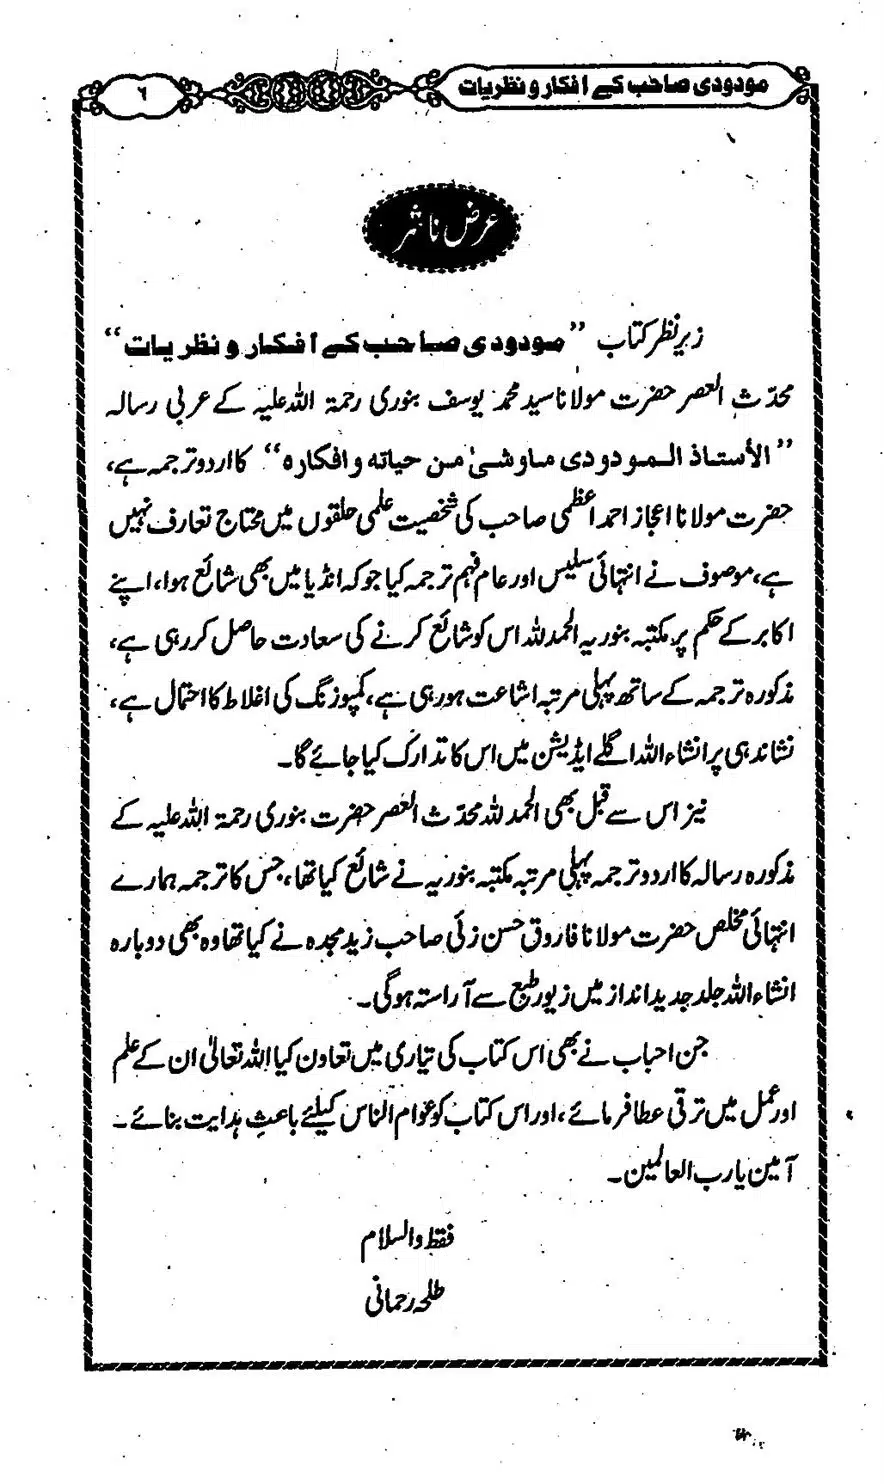 مودودی صاحب کے افکار و نظریات
۶
عرض ناشر
زیر نظر کتاب ”مودودی صاحب کے افکار و نظریات“
محدّث العصر حضرت مولانا سید محمد یوسف بنوری رحمۃ اللہ علیہ کے عربی رسالہ
”الأستاذ المودودی ماوشیٔ من حیاته و افکارہ“ کا اردو ترجمہ ہے،
حضرت مولانا اعجاز احمد اعظمی صاحب کی شخصیت علمی حلقوں میں محتاج تعارف نہیں
ہے، موصوف نے انتہائی سلیس اور عام فہم ترجمہ کیا جو کہ انڈیا میں بھی شائع ہوا، اپنے
اکابر کے حکم پر مکتبہ بنوریہ الحمد للہ اس کو شائع کرنے کی سعادت حاصل کر رہی ہے،
مذکورہ ترجمہ کے ساتھ پہلی مرتبہ اشاعت ہو رہی ہے، کمپوزنگ کی اغلاط کا احتمال ہے،
نشاندہی پر انشاء اللہ اگلے ایڈیشن میں اس کا تدارک کیا جائے گا۔
نیز اس سے قبل بھی الحمد للہ محدّث العصر حضرت بنوری رحمۃ اللہ علیہ کے
مذکورہ رسالہ کا اردو ترجمہ پہلی مرتبہ مکتبہ بنوریہ نے شائع کیا تھا، جس کا ترجمہ ہمارے
انتہائی مخلص حضرت مولانا فاروق حسن زئی صاحب زید مجدہ نے کیا تھا وہ بھی دوبارہ
انشاء اللہ جلد جدید انداز میں زیور طبع سے آراستہ ہوگی۔
جن احباب نے بھی اس کتاب کی تیاری میں تعاون کیا اللہ تعالیٰ ان کے علم
اور عمل میں ترقی عطا فرمائے، اور اس کتاب کو عوام الناس کیلئے باعثِ ہدایت بنائے۔
آمین یا رب العالمین۔
فقط والسلام
طلحہ رحمانی